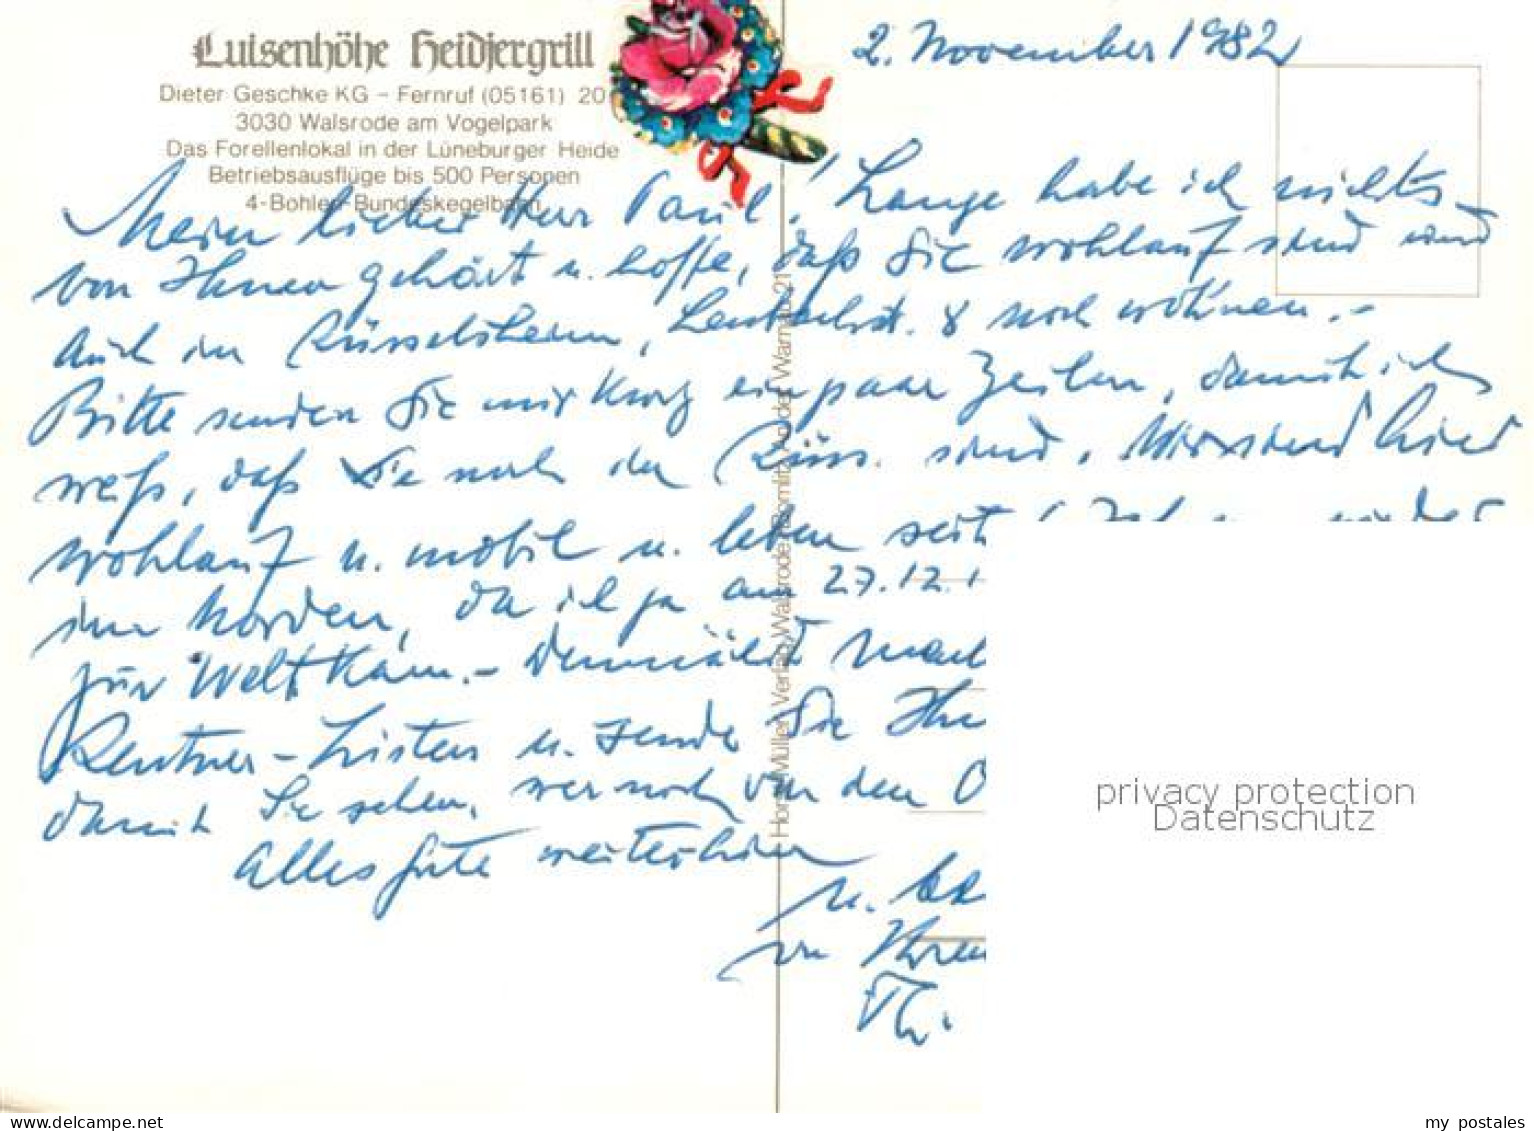 Luisenhöhe Heidjergrill
Dieter Geschke KG – Fernruf (05161) 20
3030 Walsrode am Vogelpark
Das Forellenlokal in der Lüneburger Heide
Betriebsausflüge bis 500 Personen
4-Bohlen-Bundeskegelbahn
2. November 1982
Mein lieber Herr Paul! Lange habe ich nichts
von Ihnen gehört u. hoffe, daß Sie wohlauf sind und
auch in Rüsselsheim, 8 noch wohnen.-
Bitte senden Sie mir kurz ein paar Zeilen, damit ich
weiß, daß Sie noch in Rüss. sind. Wir sind hier
wohlauf u. mobil u. leben seit
im Norden, da ich ja am 27.12.1
zur Welt kam.- Demnächst
Rentner-Listen u. sende Sie Ihn
damit Sie sehen, wer noch von den O
Alles Gute weiterhin
u.
von Ihrem
Th.
Horst Müller Verlag, Walsrode
privacy protection
Datenschutz
www.delcampe.net
my_postales